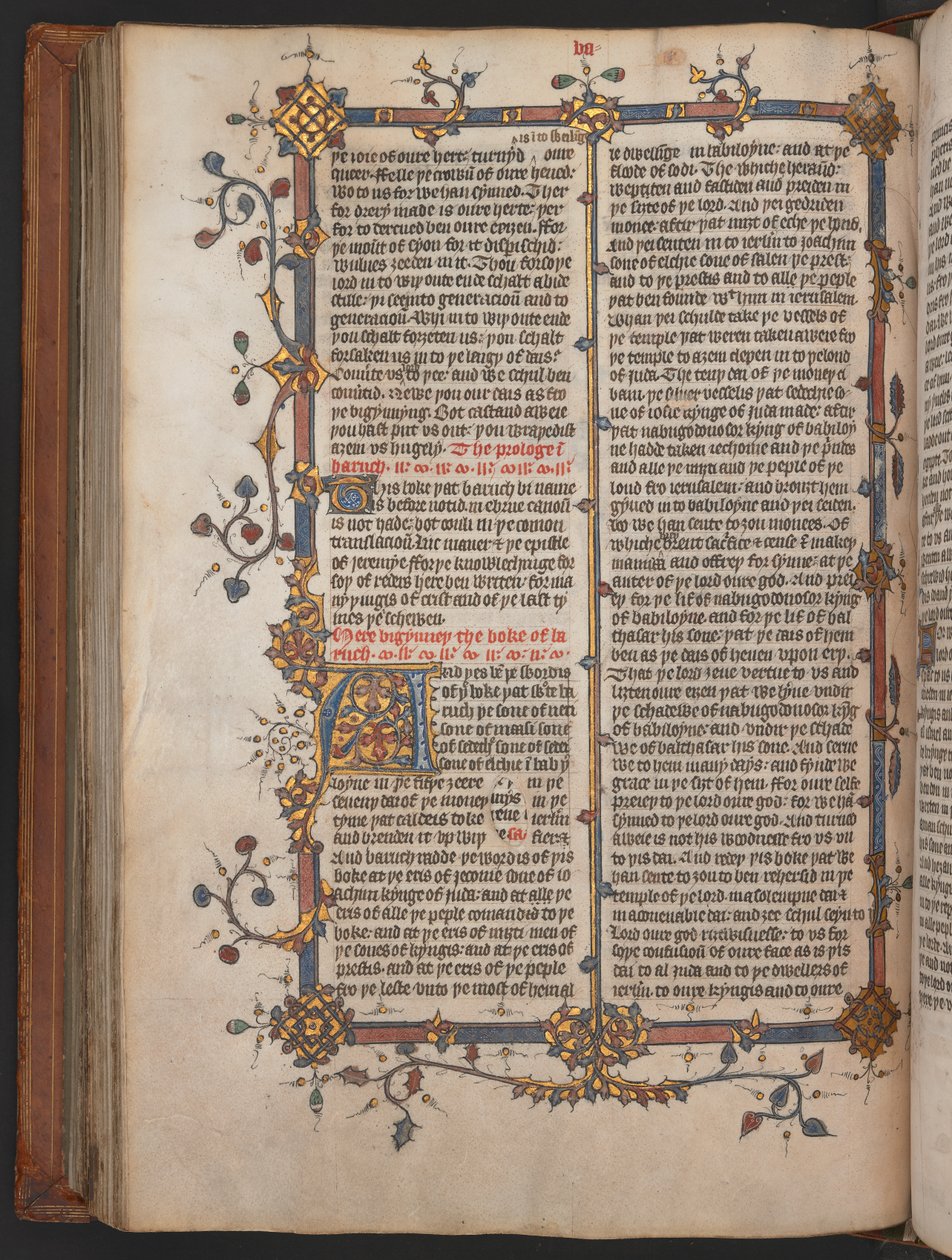 ba
is ĩ to sweilig
ye ioie of oure herte: turnyd oure
queer. Felle ye crowũ of oure heued:
wo to us for we han synned. Ther
for drery made is oure herte: yer
for to dercned ben oure eyȝen. ffor
ye mount of syon for it disperschid:
wulues ȝeeden in it. Thou forsoye
lord in to wiy oute ende schalt abide
stille: yi seet in to generacioũ and to
generacioũ. Whi in to wiy oute ende
you schalt forȝeten us: you schalt
forsaken us in to ye largy of dais:
Conũte us to yee: and we schul ben
conũtid. Newe you our dais as fro
ye bigynnyng. Bot castand aweie
you hast put vs out: you wrayedist
aȝem vs hugely. The prologe ĩ
baruch.
This boke yat baruch bi name
is before notid in ebrue canoũ
is not hade: bot conli in ye comon
translacioũ. In lic maner & ye epistle
of jeremye. ffor ye knowlechinge for
soy of reders here ben writen: for ma
ny yingis of crist and of ye last ty
mes ye schewen.
Here bigynney the boke of ba
ruch.
And yes be ye wordis
of yͥ boke yat wrote ba
ruch ye sone of neri
sone of maasi sone
of sedechi sone of sedei
sone of elchie ĩ baby
loyne in ye fifye ȝeere in ye
seueny dai of ye money in ye
tyme yat caldeis toke ierlm̃
and brenden it vp wiy fier
And baruch radde ye wordis of yis
boke at ye eris of jeconie sone of io
achym kynge of juda: and at alle ye
eris of alle ye peple comandid to ye
boke: and at ye eris of miȝti men of
ye sones of kyngis: and at ye eris of
prestis. and at ye eris of ye peple
fro ye leste vnto ye most of hem al
le dwellinge in babiloyne: and at ye
flode of sodi. The whiche herand:
wepiden and fastiden and preiden in
ye siȝte of ye lord. And yei gedriden
monee: aftur yat miȝt of eche ye hond.
And yei senten in to ierlm̃ to joachym
sone of elchie sone of salen ye prest:
and to ye prestis and to alle ye peple
yat ben founde wᵗ hym in ierusalem
Whan yei schulde take ye vessels of
ye temple yat weren taken aweie fro
ye temple to aȝem clepen in to ye lond
of juda. The teny dai of ye money ci
bam: ye siluer vesselis yat sedechie so
ne of iosie kynge of juda made: aftur
yat nabugodonosor kyng of babiloy
ne hadde taken iechonie and ye pⁱnces
and alle ye miȝti and ye peple of ye
lond fro ierusalem: and brouȝt hem
gyued in to babiloyne and yei seiden.
Lo we han sente to ȝou monees. Of
whiche brent sac̃fice & cense ĩ makey
manna and offrey for synne: at ye
auter of ye lord oure god. And prei
ey for ye lif of nabugodonosor kyng
of babiloyne: and for ye lif of bal
thasar his sone: yat ye dais of hem
ben as ye dais of heuen vpon ery.
That ye lord ȝeue vertue to vs and
liȝten oure eȝen yat we lyue vndir
ye schadewe of nabugodonosor kyng
of babiloyne: and vndir ye schade
we of balthasar his sone. And serue
we to hem many days: and fynde we
grace in ye siȝt of hem. ffor oure selfe
preiey to ye lord oure god: for we hã
synned to ye lord oure god. And turned
aweie is not his woodnesse fro vs vn
to yis dai. And redey yis boke yat we
han sente to ȝou to ben rehersid in ye
temple of ye lord in a solempne dai &
in a couenable dai: and ȝee schul seyn to
Lord oure god riȝtwisnesse: to vs for
soye confusioũ of oure face as is yis
dai to al juda and to ye dwellers of
ierlm̃. to oure kyngis and to oure